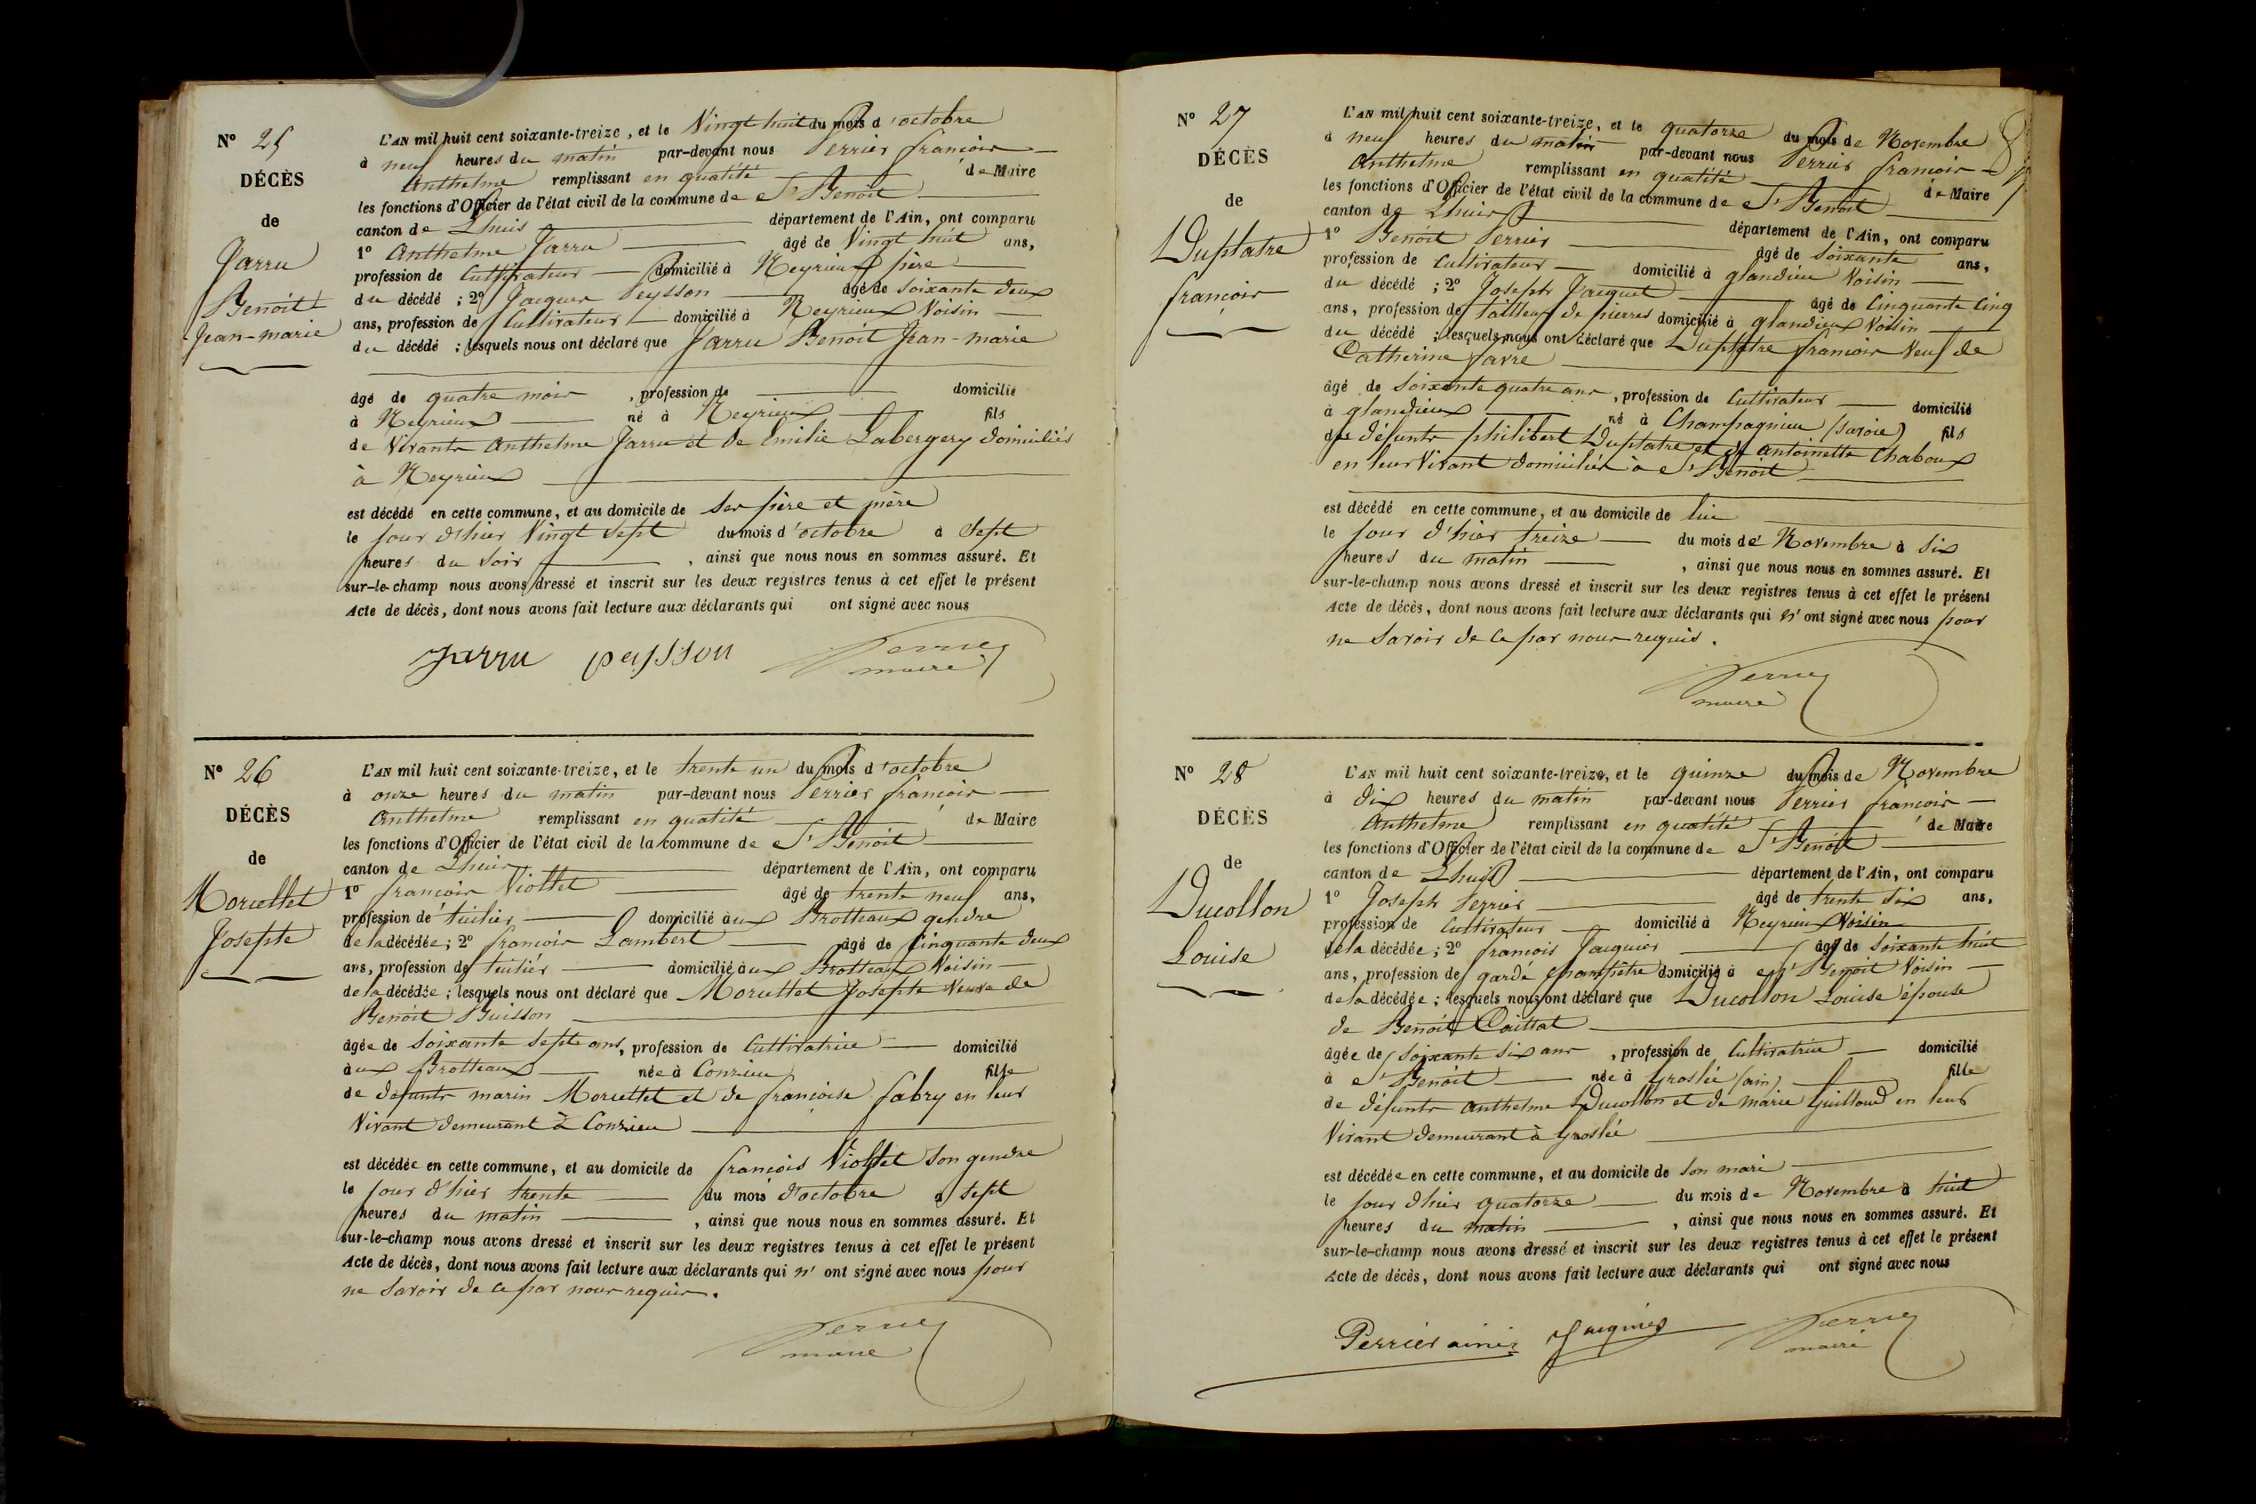 N° 25
DÉCÈS
de
Jarru
Benoît
Jean-marie
L'AN mil huit cent soixante-treize, et le Vingt huit du mois d'octobre
à neuf heures du matin par-devant nous Perrier françois
Anthelme remplissant en qualité de Maire
les fonctions d'Officier de l'état civil de la commune de St Benoît
canton de Lhuis département de l'Ain, ont comparu
1° Anthelme Jarru âgé de Vingt huit ans,
profession de Cultivateur domicilié à Neyrieux père
du décédé ; 2° Jacques Peysson âgé de soixante deux
ans, profession de Cultivateur domicilié à Neyrieux Voisin
du décédé ; lesquels nous ont déclaré que Jarru Benoit Jean-marie
âgé de quatre mois, profession de domicilié
à Neyrieux né à Neyrieux fils
de Vivants Anthelme Jarru et de Emilie Labergery domiciliés
à Neyrieux
est décédé en cette commune, et au domicile de ses père et mère
le jour d'hier Vingt sept du mois d'octobre à sept
heures du soir, ainsi que nous nous en sommes assuré. Et
sur-le-champ nous avons dressé et inscrit sur les deux registres tenus à cet effet le présent
Acte de décès, dont nous avons fait lecture aux déclarants qui ont signé avec nous
Jarru peysson Perrier
maire
N° 26
DÉCÈS
de
Morcellet
Josephte
L'AN mil huit cent soixante-treize, et le trente un du mois d'octobre
à onze heures du matin par-devant nous Perrier françois
Anthelme remplissant en qualité de Maire
les fonctions d'Officier de l'état civil de la commune de St Benoît
canton de Lhuis département de l'Ain, ont comparu
1° françois Viollet âgé de trente neuf ans,
profession de tuilier domicilié aux Brotteaux gendre
de la décédée ; 2° françois Lambert âgé de Cinquante deux
ans, profession de tuilier domicilié aux Brotteaux Voisin
de la décédée ; lesquels nous ont déclaré que Morcellet Josephte Veuve de
Benoit Buisson
âgée de soixante sept ans, profession de Cultivatrice domicilié
aux Brotteaux née à Conzieu fille
de défunts marin Morcellet et de françoise fabry en leur
Vivant demeurant à Conzieu
est décédée en cette commune, et au domicile de françois Viollet son gendre
le jour d'hier trente du mois d'octobre à sept
heures du matin, ainsi que nous nous en sommes assuré. Et
sur-le-champ nous avons dressé et inscrit sur les deux registres tenus à cet effet le présent
Acte de décès, dont nous avons fait lecture aux déclarants qui n'ont signé avec nous pour
ne savoir de ce par nous requis.
Perrier
maire
N° 27
DÉCÈS
de
Duplatre
françois
L'AN mil huit cent soixante-treize, et le quatorze du mois de Novembre
à neuf heures du matin par-devant nous Perrier françois
Anthelme remplissant en qualité de Maire
les fonctions d'Officier de l'état civil de la commune de St Benoît
canton de Lhuis département de l'Ain, ont comparu
1° Benoit Perrier âgé de soixante ans,
profession de Cultivateur domicilié à glandieu Voisin
du décédé ; 2° Joseph Jacquet âgé de Cinquante Cinq
ans, profession de tailleur de pierres domicilié à glandieux Voisin
du décédé ; lesquels nous ont déclaré que Duplatre françois Veuf de
Catherine favre
âgé de soixante quatre ans, profession de Cultivateur domicilié
à glandieux né à Champagnieu (savoie) fils
de défunts philibert Duplatre et d' antoinette Chaboux
en leur Vivant domiciliés à St Benoit
est décédé en cette commune, et au domicile de lui
le jour d'hier treize du mois de Novembre à six
heures du matin, ainsi que nous nous en sommes assuré. Et
sur-le-champ nous avons dressé et inscrit sur les deux registres tenus à cet effet le présent
Acte de décès, dont nous avons fait lecture aux déclarants qui n'ont signé avec nous pour
ne savoir de ce par nous requis.
Perrier
maire
N° 28
DÉCÈS
de
Ducollon
Louise
L'AN mil huit cent soixante-treize, et le quinze du mois de Novembre
à dix heures du matin par-devant nous Perrier françois
Anthelme remplissant en qualité de Maire
les fonctions d'Officier de l'état civil de la commune de St Benoît
canton de Lhuis département de l'Ain, ont comparu
1° Joseph Perrier âgé de trente six ans,
profession de Cultivateur domicilié à Neyrieux Voisin
de la décédée ; 2° françois Jacquier âgé de soixante huit
ans, profession de garde champêtre domicilié à St Benoit Voisin
de la décédée ; lesquels nous ont déclaré que Ducollon Louise épouse
de Benoit Caittat
âgée de soixante six ans, profession de Cultivatrice domicilié
à St Benoit née à Groslée (ain) fille
de défunts Anthelme Ducollon et de marie Guilloud en leur
Vivant demeurant à Groslée
est décédée en cette commune, et au domicile de son mari
le jour d'hier quatorze du mois de Novembre à huit
heures du matin, ainsi que nous nous en sommes assuré. Et
sur-le-champ nous avons dressé et inscrit sur les deux registres tenus à cet effet le présent
Acte de décès, dont nous avons fait lecture aux déclarants qui ont signé avec nous
Perrier ainé Jaquier Perrier
maire